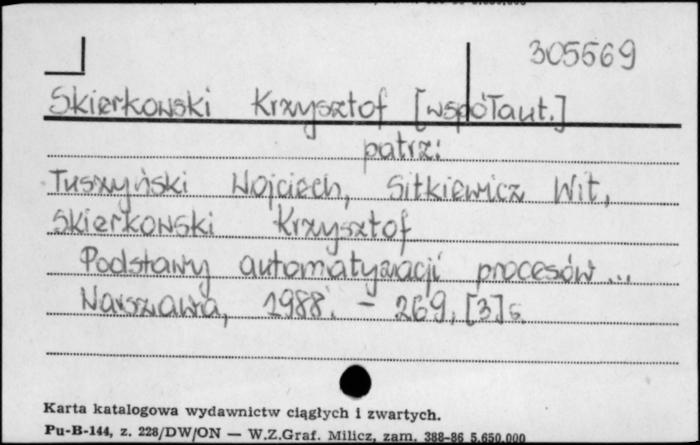 305569
Skierkowski Krzysztof [współaut.]
patrz:
Tuszyński Wojciech, Sitkiewicz Wit,
Skierkowski Krzysztof
Podstawy automatyzacji procesów ...
Warszawa, 1988. - 269, [3] s.
Karta katalogowa wydawnictw ciągłych i zwartych.
Pu-B-144, z. 228/DW/ON — W.Z.Graf. Milicz, zam. 388-86 5.650.000